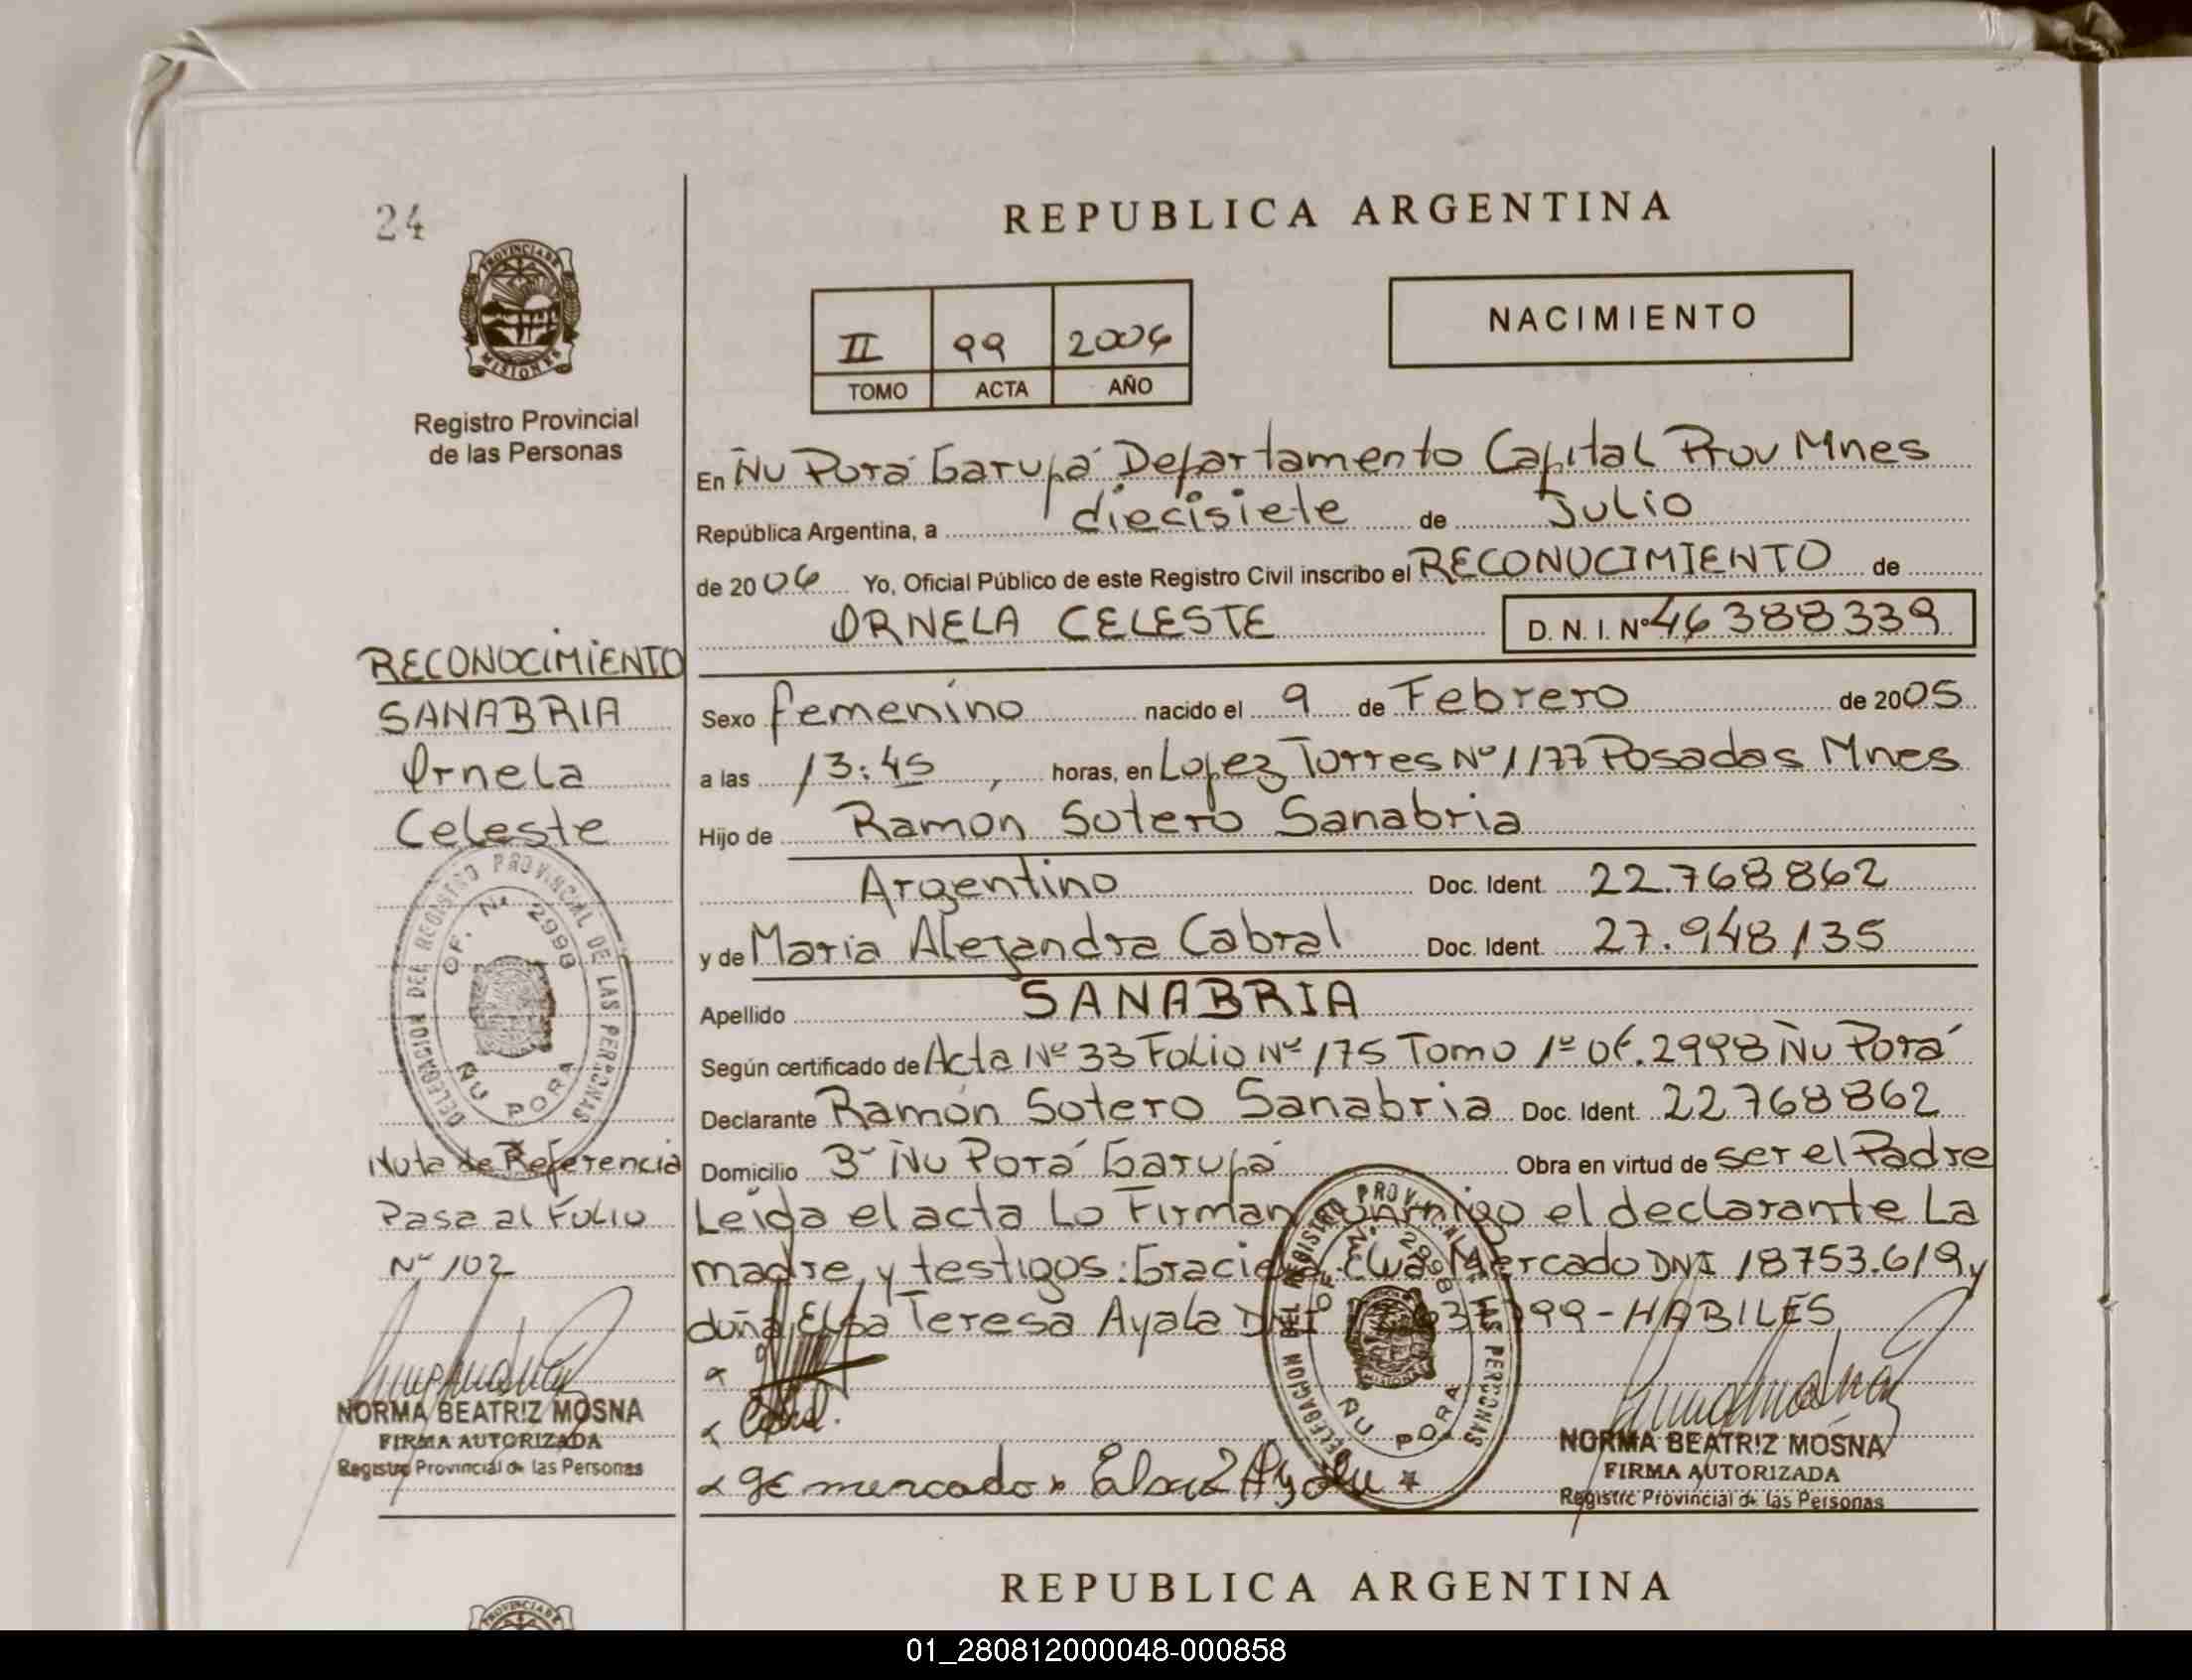 24
REPUBLICA ARGENTINA
PROVINCIA DE
MISIONES
II 99 2006
TOMO ACTA AÑO
NACIMIENTO
Registro Provincial
de las Personas
En Ñu Porá Garupá Departamento Capital Prov Mnes
República Argentina, a diecisiete de Julio
de 2006 Yo, Oficial Público de este Registro Civil inscribo el RECONOCIMIENTO de
ORNELA CELESTE D. N. I. Nº 46388339
RECONOCIMIENTO
SANABRIA
Ornela
Celeste
Sexo femenino nacido el 9 de Febrero de 2005
a las 13:45, horas, en Lopez Torres Nº 1177 Posadas Mnes
Hijo de Ramon Sotero Sanabria
Argentino Doc. Ident. 22.768862
y de Maria Alejandra Cabral Doc. Ident. 27.948135
Apellido SANABRIA
Según certificado de Acta Nº 33 Folio Nº 175 Tomo 1º Of. 2998 Ñu Porá
Declarante Ramón Sotero Sanabria Doc. Ident. 22768862
Domicilio Bº Ñu Porá Garupá Obra en virtud de ser el Padre
Leida el acta Lo Firman conmigo el declarante La
madre, y testigos: Graciela Mercado DNI 18753.619 y
doña Elsa Teresa Ayala DNI HABILES
DELEGACION DEL REGISTRO PROVINCIAL DE LAS PERSONAS
OF. Nº 2998
ÑU PORA
Nota de Referencia
Pasa al Folio
Nº 102
NORMA BEATRIZ MOSNA
FIRMA AUTORIZADA
Registro Provincial de las Personas
DELEGACION DEL REGISTRO PROVINCIAL DE LAS PERSONAS
OF. Nº 2998
ÑU PORA
x ge mercado x Elsa Ayala
NORMA BEATRIZ MOSNA
FIRMA AUTORIZADA
Registro Provincial de las Personas
REPUBLICA ARGENTINA
PROVINCIA DE
01_280812000048-000858